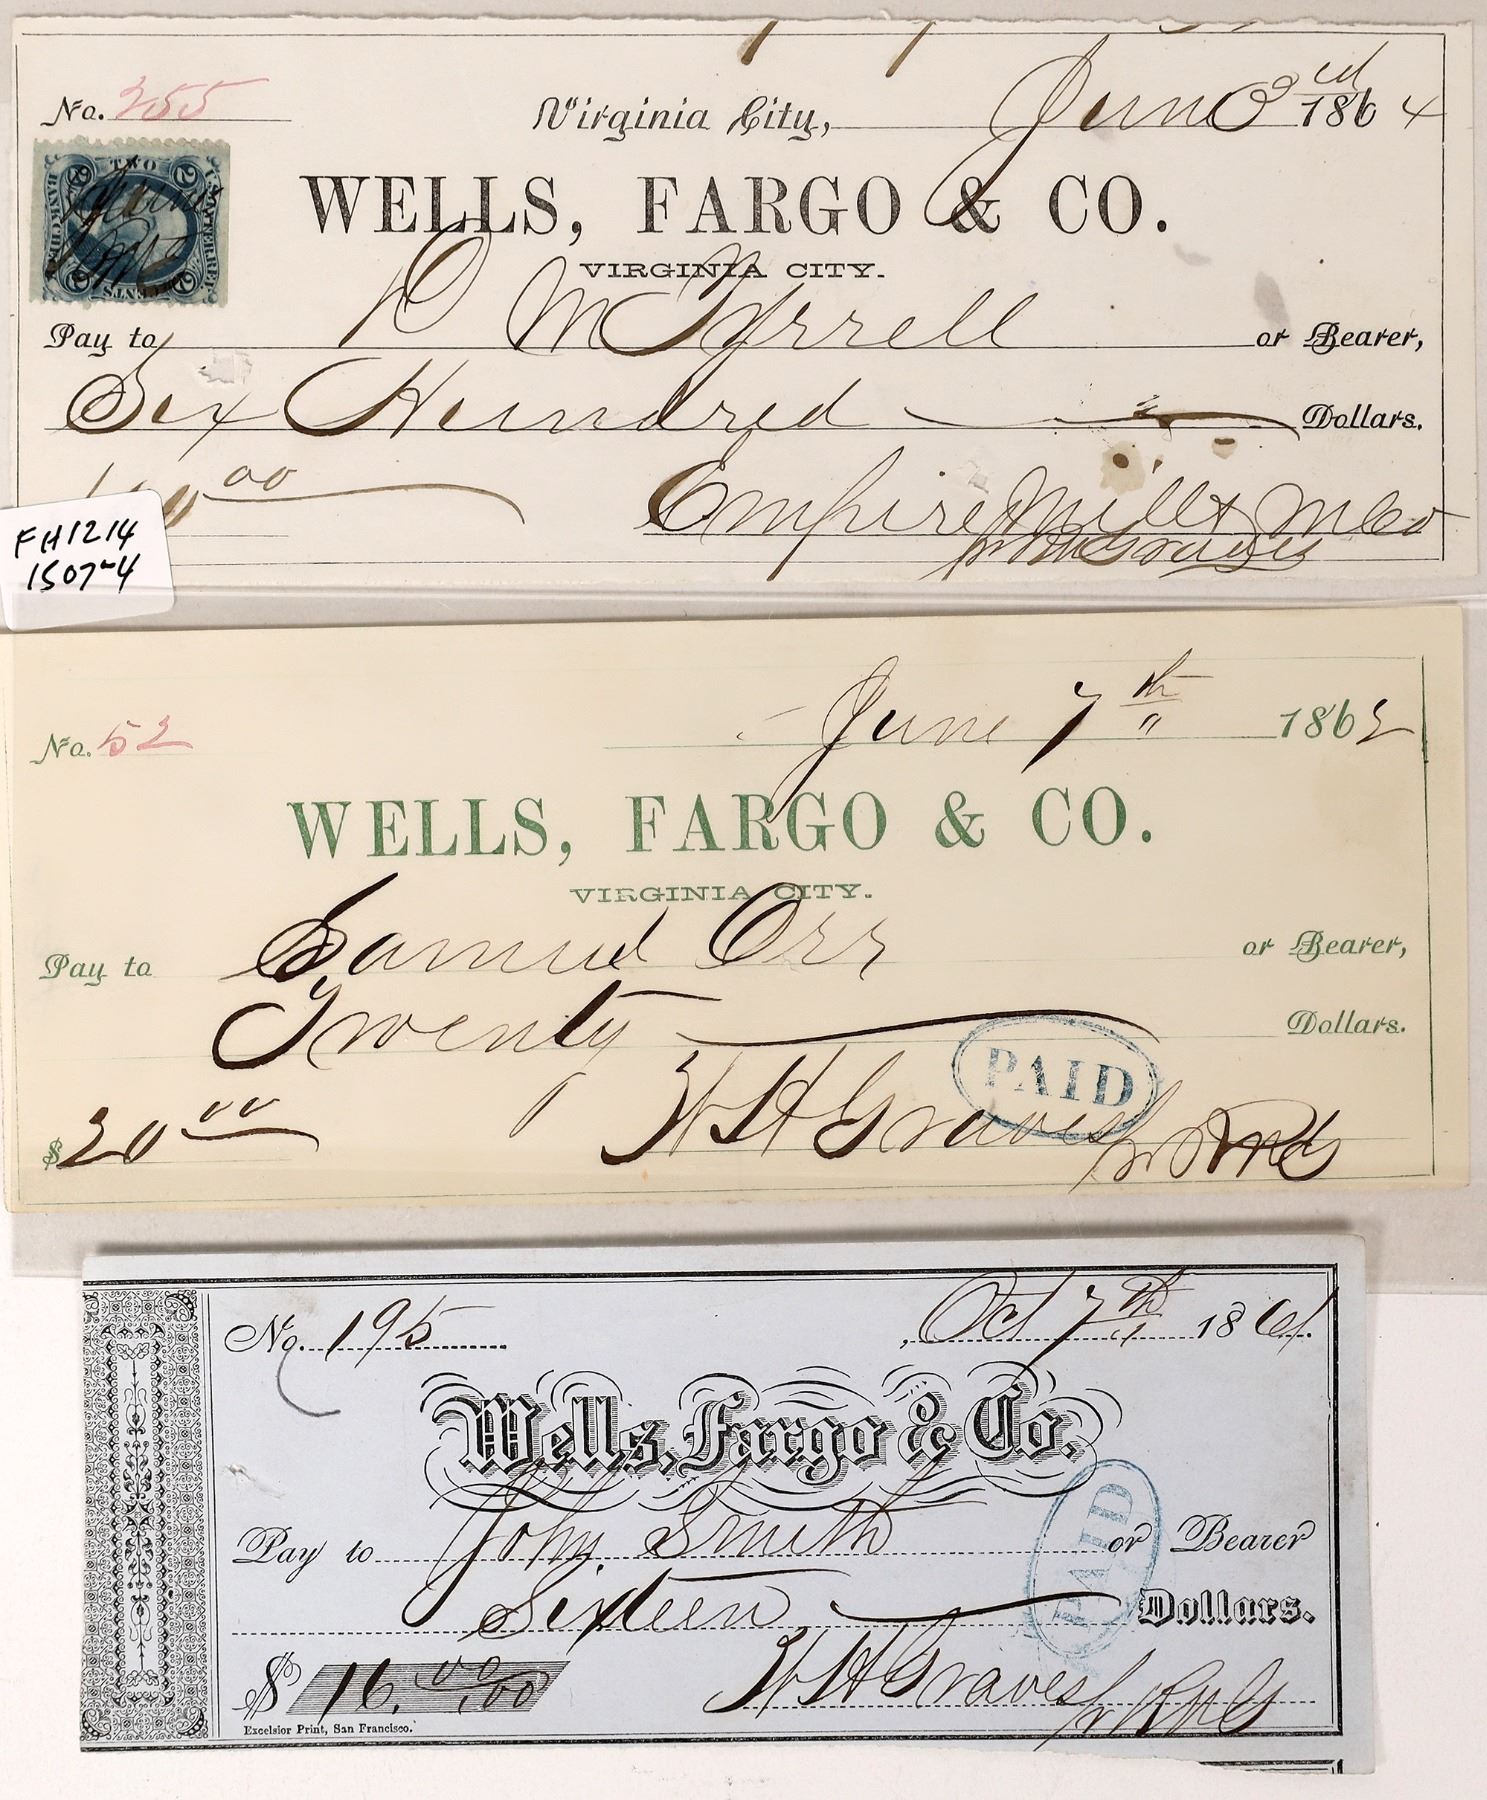 No. 355
Virginia City, June 3rd 1864
WELLS, FARGO & CO.
VIRGINIA CITY.
U.S. INTER. REV.
TWO
2 2
BANK CHECK
2 2
CENTS
June
Pay to D McTyrrell or Bearer,
Six Hundred Dollars.
00
Empire Mill & M Co
Graves
FH1214
1507-4
No. 52
June 7th " 1862
WELLS, FARGO & CO.
VIRGINIA CITY.
Pay to Samuel Orr or Bearer,
Twenty Dollars.
PAID
$20 00
W H Graves
No. 195
Oct 7th " 1861.
Wells, Fargo & Co.
Pay to John Smith or Bearer
Sixteen Dollars.
PAID
$ 16. 00/100
W H Graves
Excelsior Print, San Francisco.